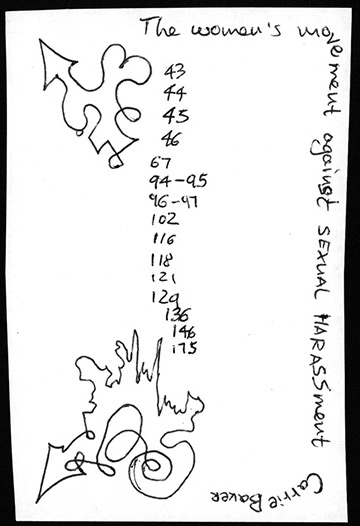 The women's movement against SEXUAL HARASSment
43
44
45
46
67
94-95
96-97
102
116
118
121
129
136
146
175
Carrie Baker